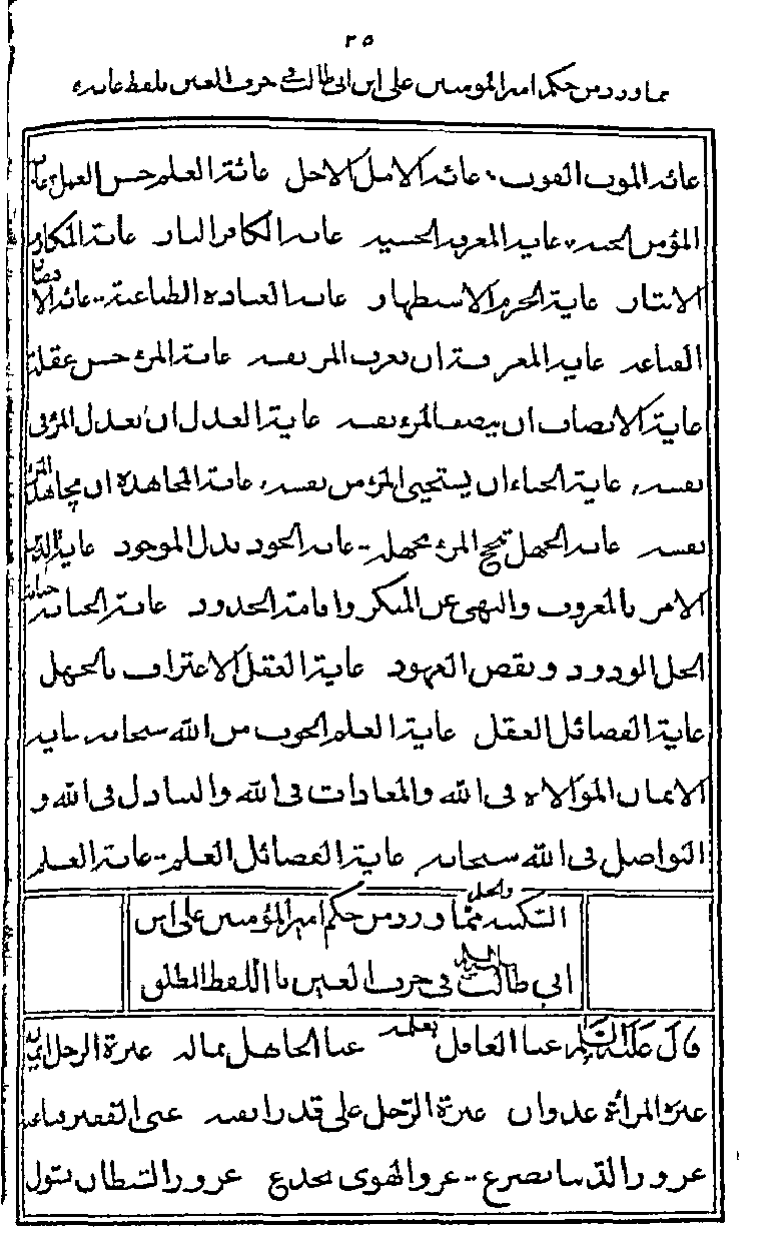 ٢٥
مما ورد من حكم امير المؤمنين على ابن ابى طالب فى حرف الغين بلفظ غاية
غاية الموت الفوت غاية الامل الاجل غاية العلم حسن العمل غاية
المؤمن الجنة غاية المعرفة الخشية غاية الكافر النار غاية المكارم
الايثار غاية الحزم الاستظهار غاية العبادة الطاعة غاية الاقتصاد
القناعة غاية المعرفة ان يعرف المرء نفسه غاية المرء حسن عقله
غاية الانصاف ان ينصف المرء نفسه غاية العدل ان يعدل المرء فى
نفسه غاية الحياء ان يستحيى المرء من نفسه غاية المجاهدة ان يجاهد المرء
نفسه غاية الجهل تبجح المرء بجهله غاية الجود بذل الموجود غاية الدين
الامر بالمعروف والنهى عن المنكر واقامة الحدود غاية الخيانة خيانة
الخل الودود ونقض العهود غاية العقل الاعتراف بالجهل
غاية الفضائل العقل غاية العلم الخوف من الله سبحانه غاية
الايمان الموالاة فى الله والمعادات فى الله والتباذل فى الله و
التواصل فى الله سبحانه غاية الفضائل العلم غاية العلم
السكينة والحلم مما ورد من حكم امير المؤمنين على ابن
ابى طالب عليه السلام فى حرف الغين باللفظ المطلق
قال عليه السلام غنا العاقل بعلمه غنا الجاهل بماله غيرة الرجل ايمان
غيرة المرأة عدوان غيرة الرجل على قدر انفته غنى الفقير قناعته
غرور الدنيا يصرع غرور الهوى يخدع غرور الشيطان يسول